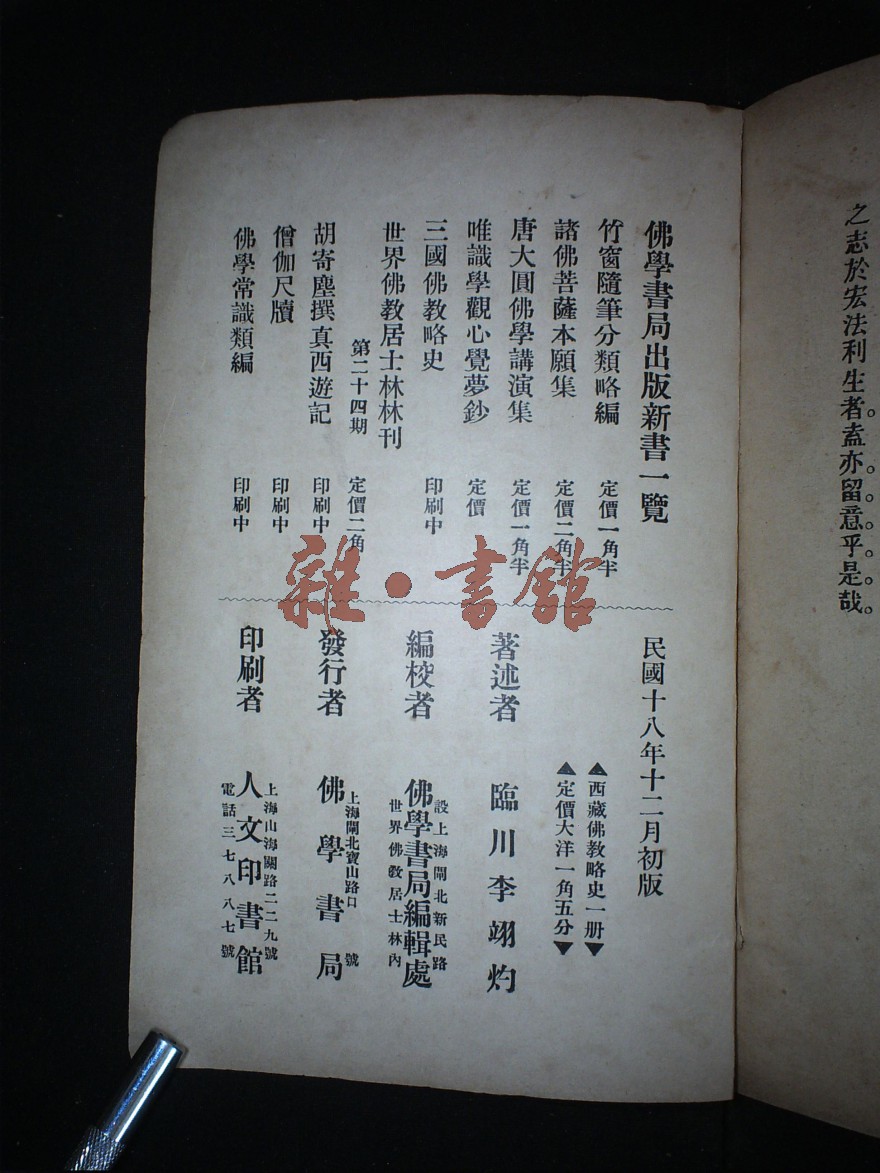 之志於宏法利生者。盍亦留意乎是哉。
佛學書局出版新書一覽
竹窗隨筆分類略編 定價一角半
諸佛菩薩本願集 定價二角半
唐大圓佛學講演集 定價一角半
唯識學觀心覺夢鈔 定價
三國佛教略史 印刷中
世界佛教居士林林刊
第二十四期 定價二角
胡寄塵撰真西遊記 印刷中
僧伽尺牘 印刷中
佛學常識類編 印刷中
民國十八年十二月初版
▲西藏佛教略史一册▼
▲定價大洋一角五分▼
著述者 臨川李翊灼
編校者
設上海閘北新民路
佛學書局編輯處
世界佛教居士林內
發行者
上海閘北寶山路口 號
佛學書局
印刷者
上海山海關路二二九號
人文印書館
電話三七八八七號
雜·書館